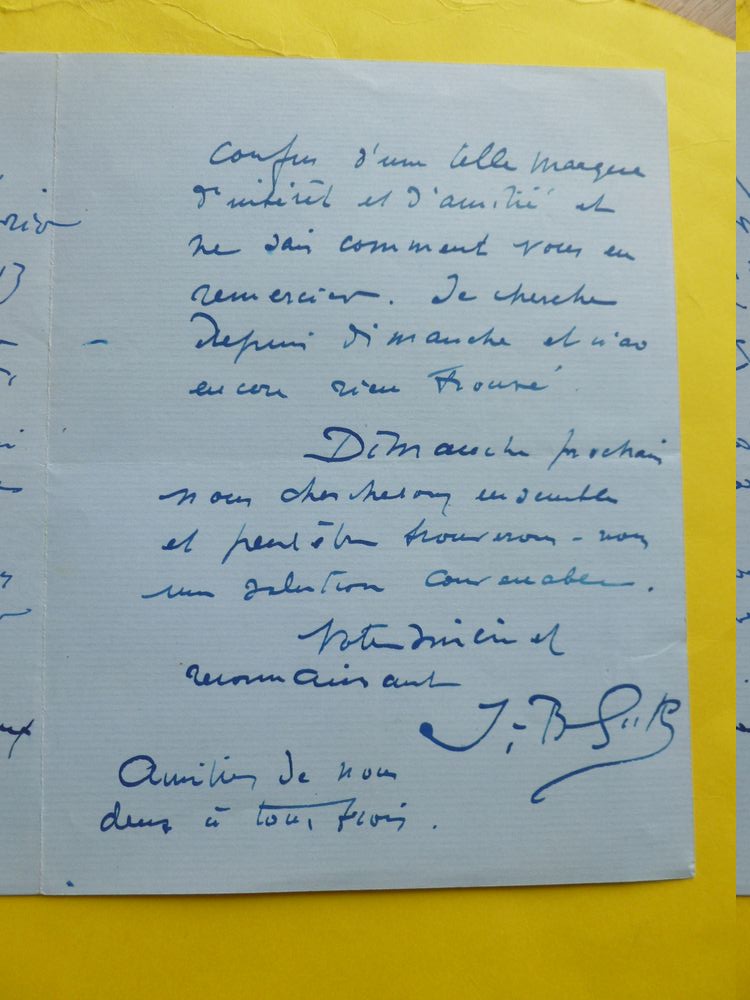 confus d'une telle marque
d'intérêt et d'amitié et
ne sais comment vous en
remercier. Je cherche
depuis dimanche et n'ai
encore rien trouvé
Dimanche prochain
nous chercherons ensemble
et peut être trouverons-nous
une solution convenable.
Votre sincère et
reconnaissant
J. B
Amitiés de nous
deux à tous trois.